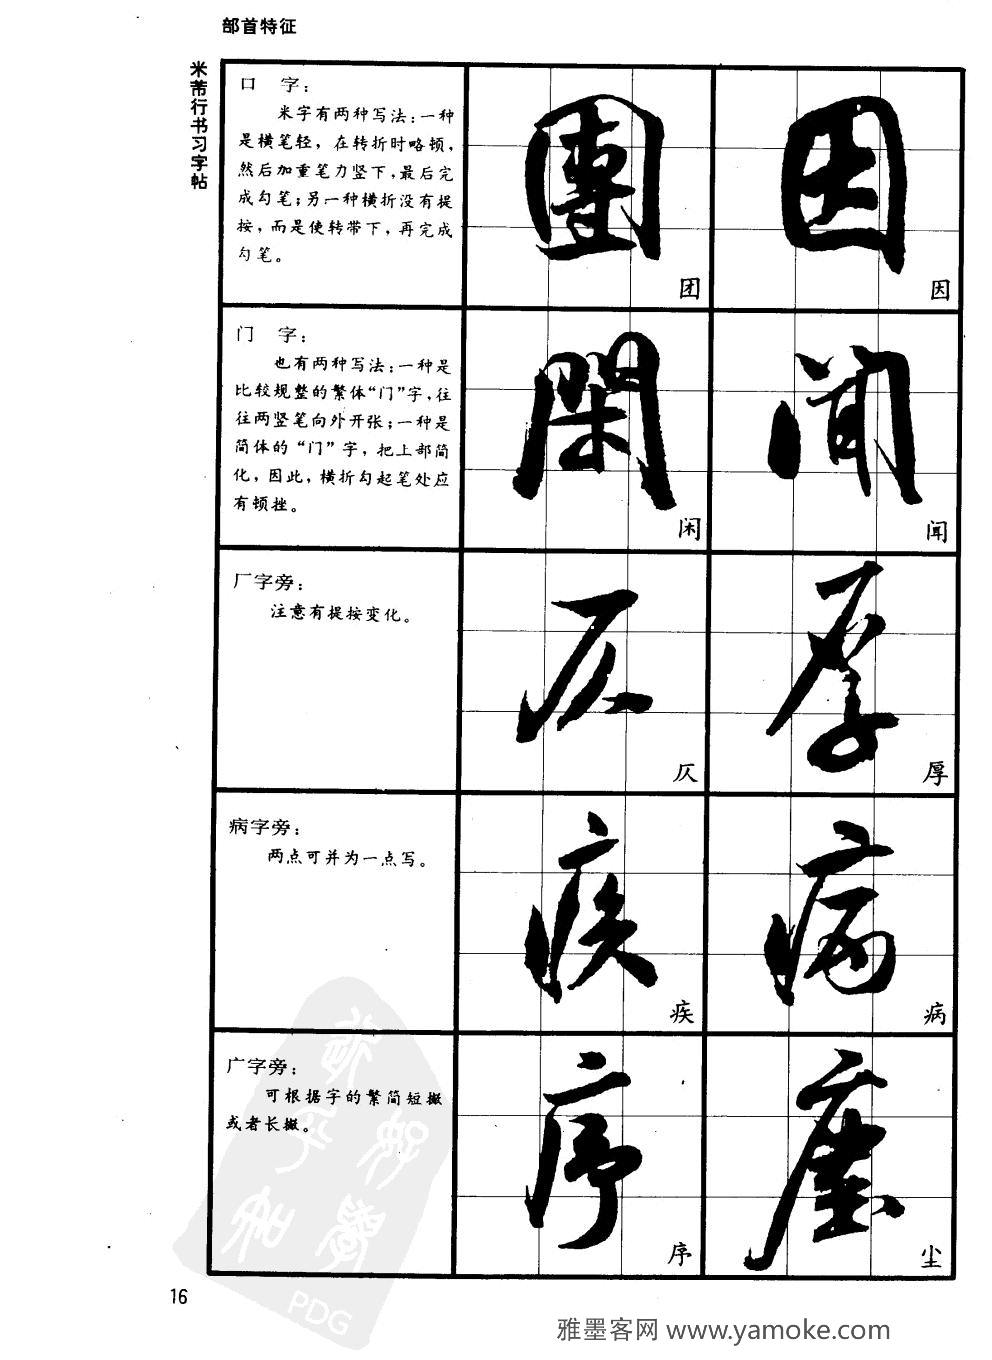 部首特征
米芾行书习字帖
口 字:
米字有两种写法:一种
是横笔轻，在转折时略顿，
然后加重笔力竖下，最后完
成勾笔；另一种横折没有提
按，而是使转带下，再完成
勾笔。
團
团
因
因
门 字:
也有两种写法:一种是
比较规整的繁体“门”字，往
往两竖笔向外开张；一种是
简体的“门”字，把上部简
化，因此，横折勾起笔处应
有顿挫。
閑
闲
闻
闻
厂字旁:
注意有提按变化。
仄
仄
厚
厚
病字旁:
两点可并为一点写。
疾
疾
病
病
广字旁:
可根据字的繁简短撇
或者长撇。
序
序
塵
尘
16
PDG
雅墨客网 www.yamoke.com